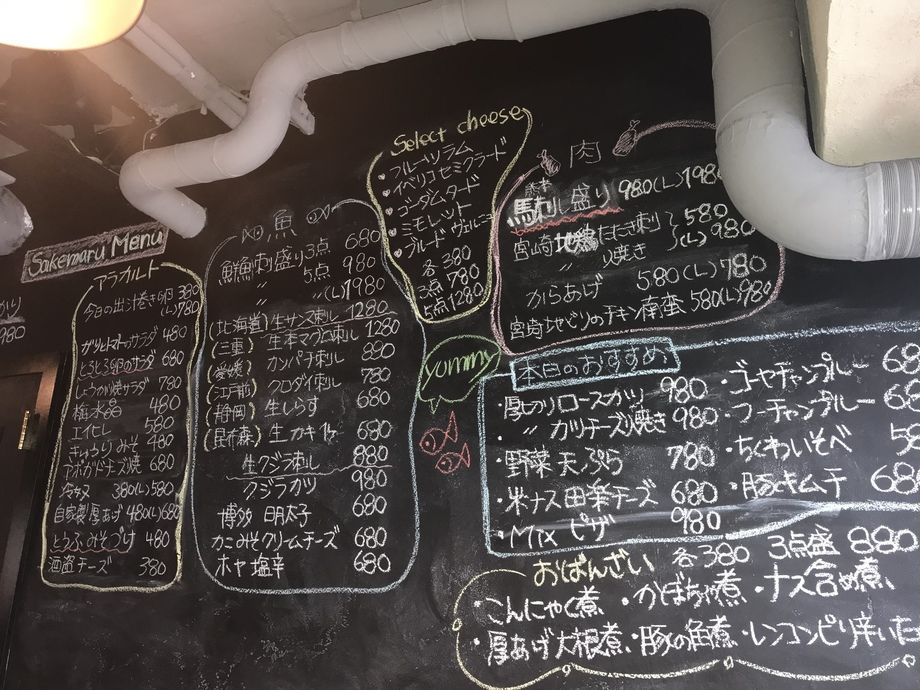 Sakemaru Menu
アラカルト
今日の出汁巻き 380
(L)780
ガリトマトのサラダ 480
とろとろ卵のサラダ 680
しょうが焼サラダ 780
梅水晶 480
エイヒレ 580
きゅうりみそ 480
アボガドチーズ焼 680
冷奴 380(L)580
自家製厚あげ 480(L)680
とうふみそづけ 480
酒盗チーズ 380
魚
鮮魚刺盛り3点 680
〃 5点 980
〃 (L)1980
(北海道)生サンマ刺し 1280
(三重)生本マグロ刺し 1280
(愛媛)カンパチ刺し 880
(江戸前)クロダイ刺し 780
(静岡)生しらす 680
(昆布森)生カキ1ケ 680
生クジラ刺し 880
クジラカツ 980
博多明太子 680
かにみそクリームチーズ 680
ホヤ塩辛 680
Select cheese
フルーツラム
イベリコセミクラード
ゴーダムタード
ミモレット
ブルード ヴェルニュ
各 380
3点 780
5点 1280
yummy
肉
熊本
馬刺し盛り 980(L)1980
宮崎地鶏たたき刺
〃 炙り焼き
580
(L)980
からあげ 580(L)780
宮崎地どりのチキン南蛮 580(L)980
本日のおすすめ
・厚切りロースカツ 980
・〃 カツチーズ焼き 980
・野菜天ぷら 780
・米ナス田楽チーズ 680
・Mix ピザ 980
・ゴーヤチャンプルー 68
・フーチャンプルー 68
・ちくわいそべ 58
・豚キムチ 68
おばんざい 各380 3点盛 880
・こんにゃく煮 ・かぼちゃ煮 ・ナス含め煮
・厚あげ大根煮 ・豚の角煮 ・レンコンピリ辛いた